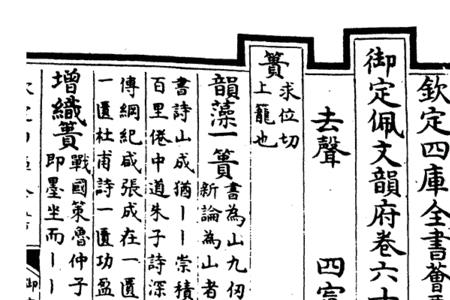 欽定四庫全書薈
御定佩文韻府卷六十
去聲
四寘
簣求位切
上籠也
韻藻一簣書為山九仞
新論為山者
書詩山成猶一一崇積
百里倦中道朱子詩深
傳綱紀咸張成在一匱
一匱杜甫詩一匱功盈
增織簣戰國策魯仲子
即墨坐而一一